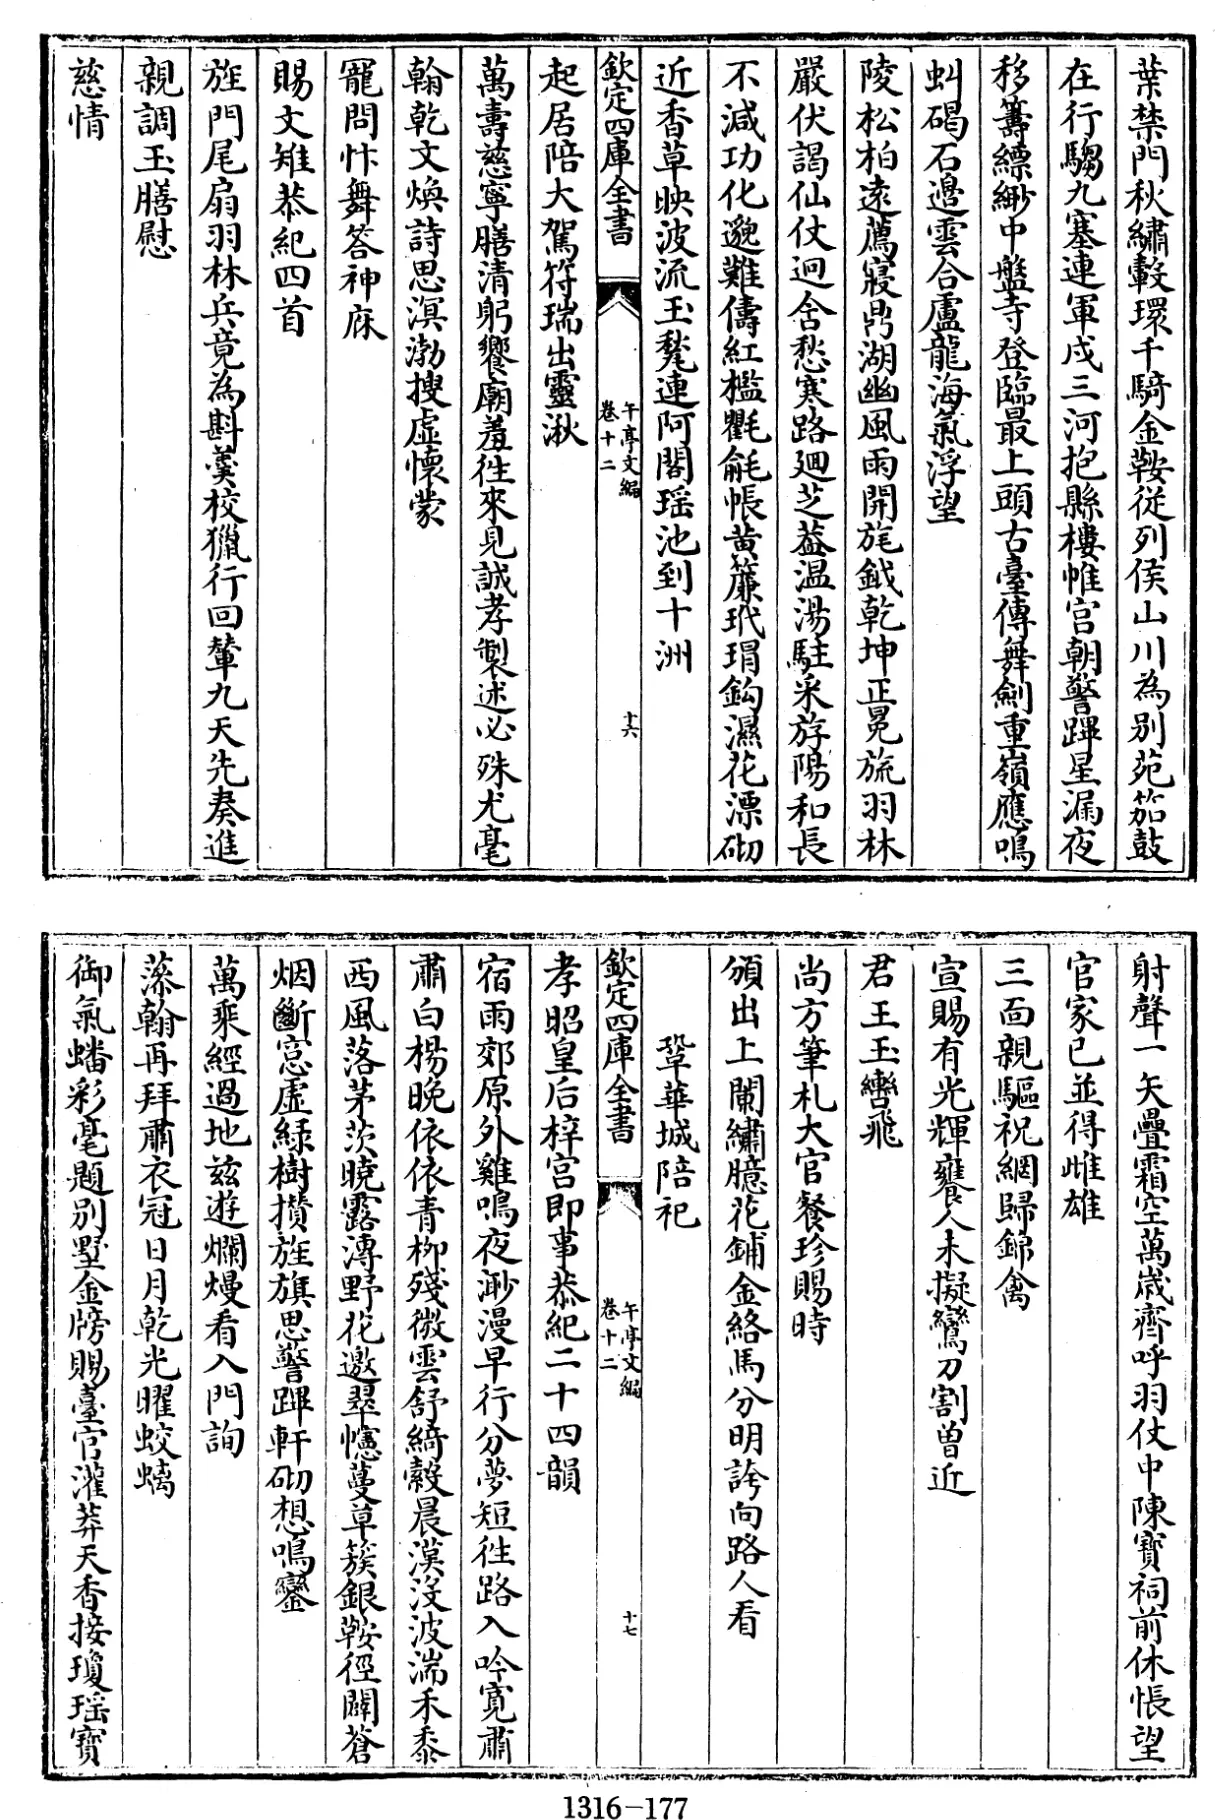 葉禁門秋繡轂環千騎金鞍從列侯山川為別苑笳鼓
在行騶九塞連軍戍三河抱縣樓帷宫朝警蹕星漏夜
移籌縹緲中盤寺登臨最上頭古臺傳舞劍重嶺應鳴
虯碣石邊雲合盧龍海氣浮望
陵松柏遠薦寢鼎湖幽風雨開旄鉞乾坤正冕旒羽林
嚴伏謁仙仗迥含愁寒路廻芝葢温湯駐采斿陽和長
不減功化邈難儔紅檻氍毹帳黄簾玳瑁鈎濕花漂砌
近香草映波流玉甃連阿閣瑶池到十洲
欽定四庫全書
午亭文編
卷十二
十六
起居陪大駕符瑞出靈湫
萬壽慈寧膳清躬饗廟羞徃來見誠孝製述必殊尤毫
翰乾文煥詩思溟渤搜虛懷蒙
寵問忭舞答神庥
賜文雉恭紀四首
旌門尾扇羽林兵竟為斟羹校獵行回輦九天先奏進
親調玉膳慰
慈情
射聲一矢疊霜空萬歲齊呼羽仗中陳寶祠前休悵望
官家已並得雌雄
三面親驅祝網歸錦禽
宣賜有光輝饔人未擬鸞刀割曽近
君王玉轡飛
尚方筆札大官餐珍賜時
頒出上闌繡臆花鋪金絡馬分明誇向路人看
鞏華城陪祀
欽定四庫全書
午亭文編
卷十二
十七
孝昭皇后梓宫即事恭紀二十四韻
宿雨郊原外雞鳴夜渺漫早行分夢短徃路入吟寛肅
肅白楊晚依依青柳殘微雲舒綺縠晨漠没波湍禾黍
西風落茅茨曉露漙野花邀翠幰蔓草簇銀鞍徑闢蒼
烟斷窓虚緑樹攢旌旗思警蹕軒砌想鳴鑾
萬乘經過地兹遊爛熳看入門詢
藻翰再拜肅衣冠日月乾光曜蛟螭
御氣蟠彩毫題別墅金牓賜臺官灌莽天香接瓊瑶寶
1316-177